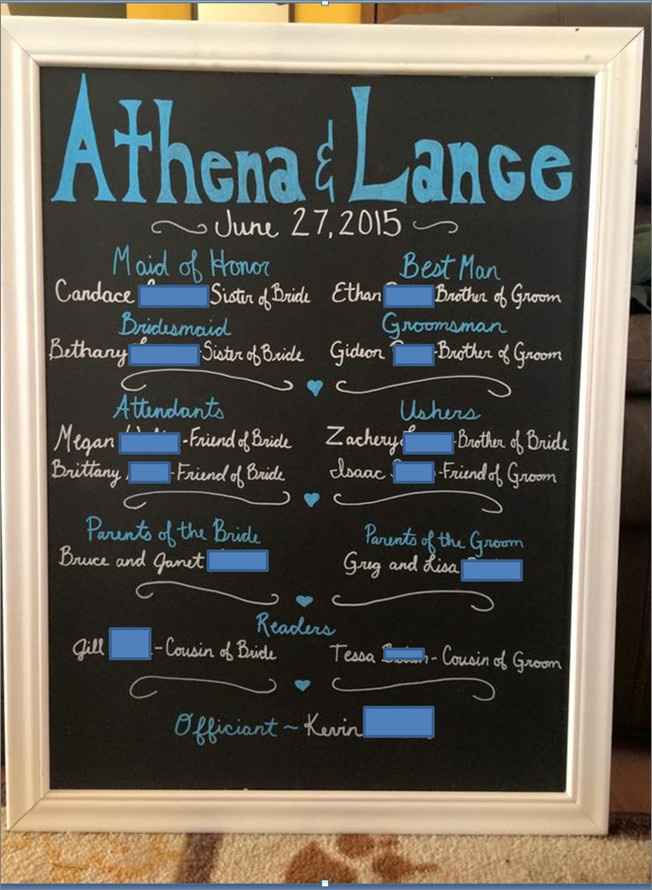 Athena & Lance
~ June 27, 2015 ~
Maid of Honor Best Man
Candace Sister of Bride Ethan Brother of Groom
Bridesmaid Groomsman
Bethany -Sister of Bride Gideon -Brother of Groom
Attendants Ushers
Megan -Friend of Bride Zachery -Brother of Bride
Brittany -Friend of Bride Isaac -Friend of Groom
Parents of the Bride Parents of the Groom
Bruce and Janet Greg and Lisa
Readers
Jill -Cousin of Bride Tessa - Cousin of Groom
Officiant ~ Kevin